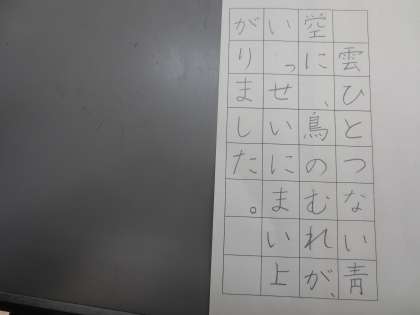 雲ひとつない青
空に、鳥のむれが、
いっせいにまい上
がりました。